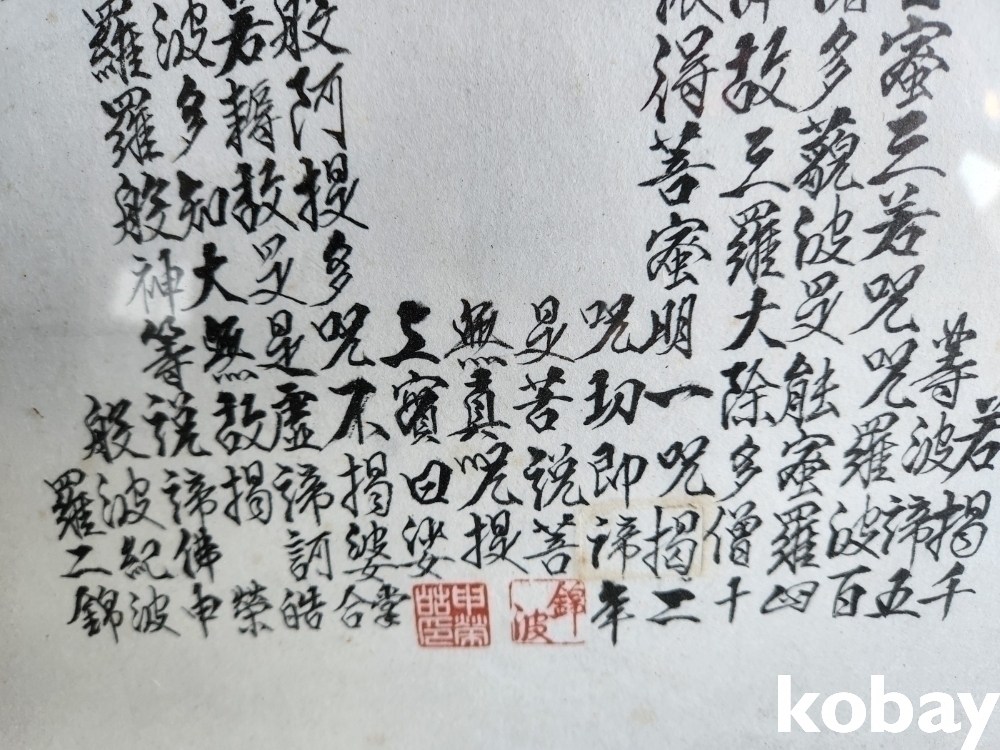 若揭千
等波諦五
蜜三若咒咒羅波百
多藐波是能蜜羅四
故三羅大除多僧十
得菩蜜明一咒揭二
咒切即諦年
是菩說菩
錦波
無真咒提
申榮皓印
上實曰娑掌
般阿提多咒不揭婆合
若耨故是是虛諦訶皓
波多知大無故揭榮
羅羅般神等說諦佛申
般波紀波
羅二錦
kobay